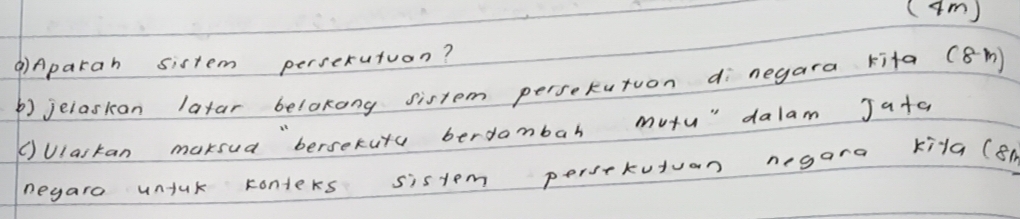 (4m)
a) Apakah sistem persekutuan?
b) jelaskan latar belakang sistem persekutuan di negara kita (8m)
c) Ulaskan maksud "bersekutu berdambah mutu" dalam Jata
negara untuk konteks sistem persekutuan negara kita (8m